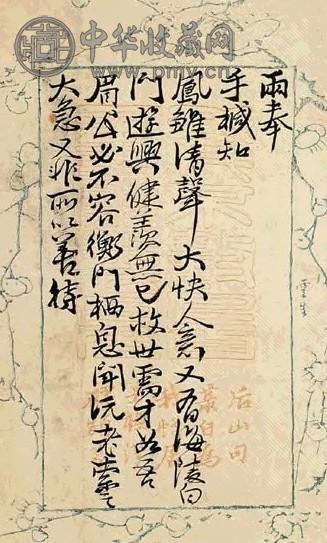 中华收藏网
www.pmyv.cn
兩奉
手椷知
鳳雛清聲大快人意又有海陵白
門遊興健羨無已救世需才如吾
眉公必不容衡門栖息聞沅老處
大急又非所以善待
后山句